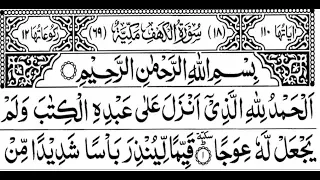 اٰیَاتُهَا ۱۱۰ (۱۸) سُوْرَةُ الْكَهْفِ مَكِّيَّةٌ (۶۹) رُكُوْعَاتُهَا ۱۲
بِسْمِ اللّٰهِ الرَّحْمٰنِ الرَّحِیْمِ
اَلْحَمْدُ لِلّٰهِ الَّذِیْۤ اَنْزَلَ عَلٰى عَبْدِهِ الْكِتٰبَ وَلَمْ
یَجْعَلْ لَّهٗ عِوَجًا ؕ سكتة ۱ قَیِّمًا لِّیُنْذِرَ بَاْسًا شَدِیْدًا مِّنْ